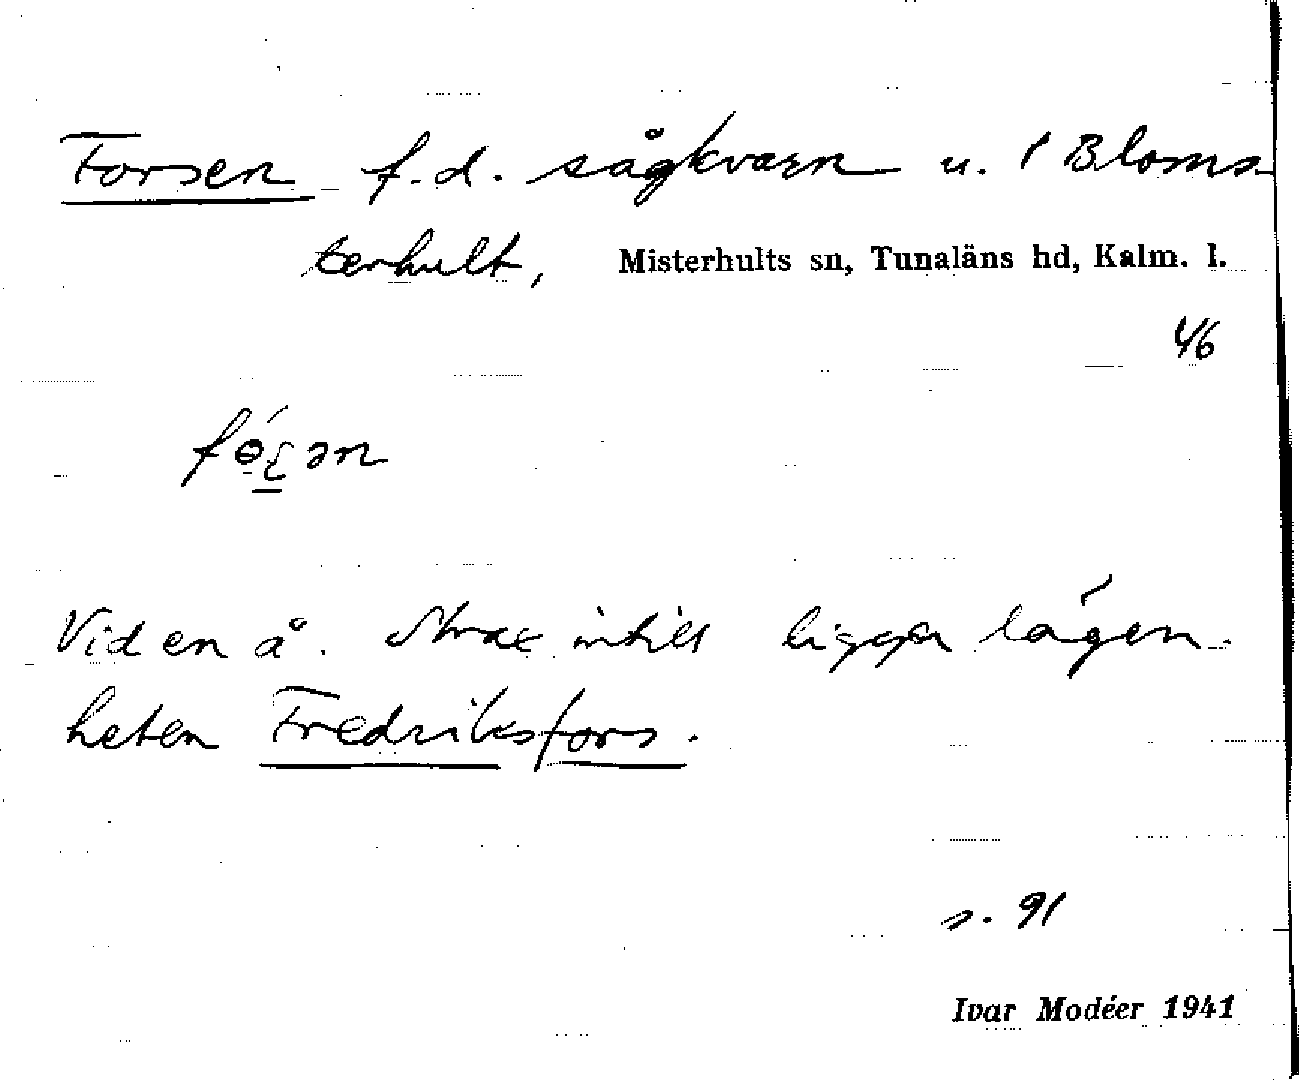 Forsen f.d. sågkvarn u. 1 Bloms-
terhult, Misterhults sn, Tunaläns hd, Kalm. l.
46
Vid en å. Strax intill ligger lägen-
heten Fredriksfors.
s. 91
Ivar Modéer 1941